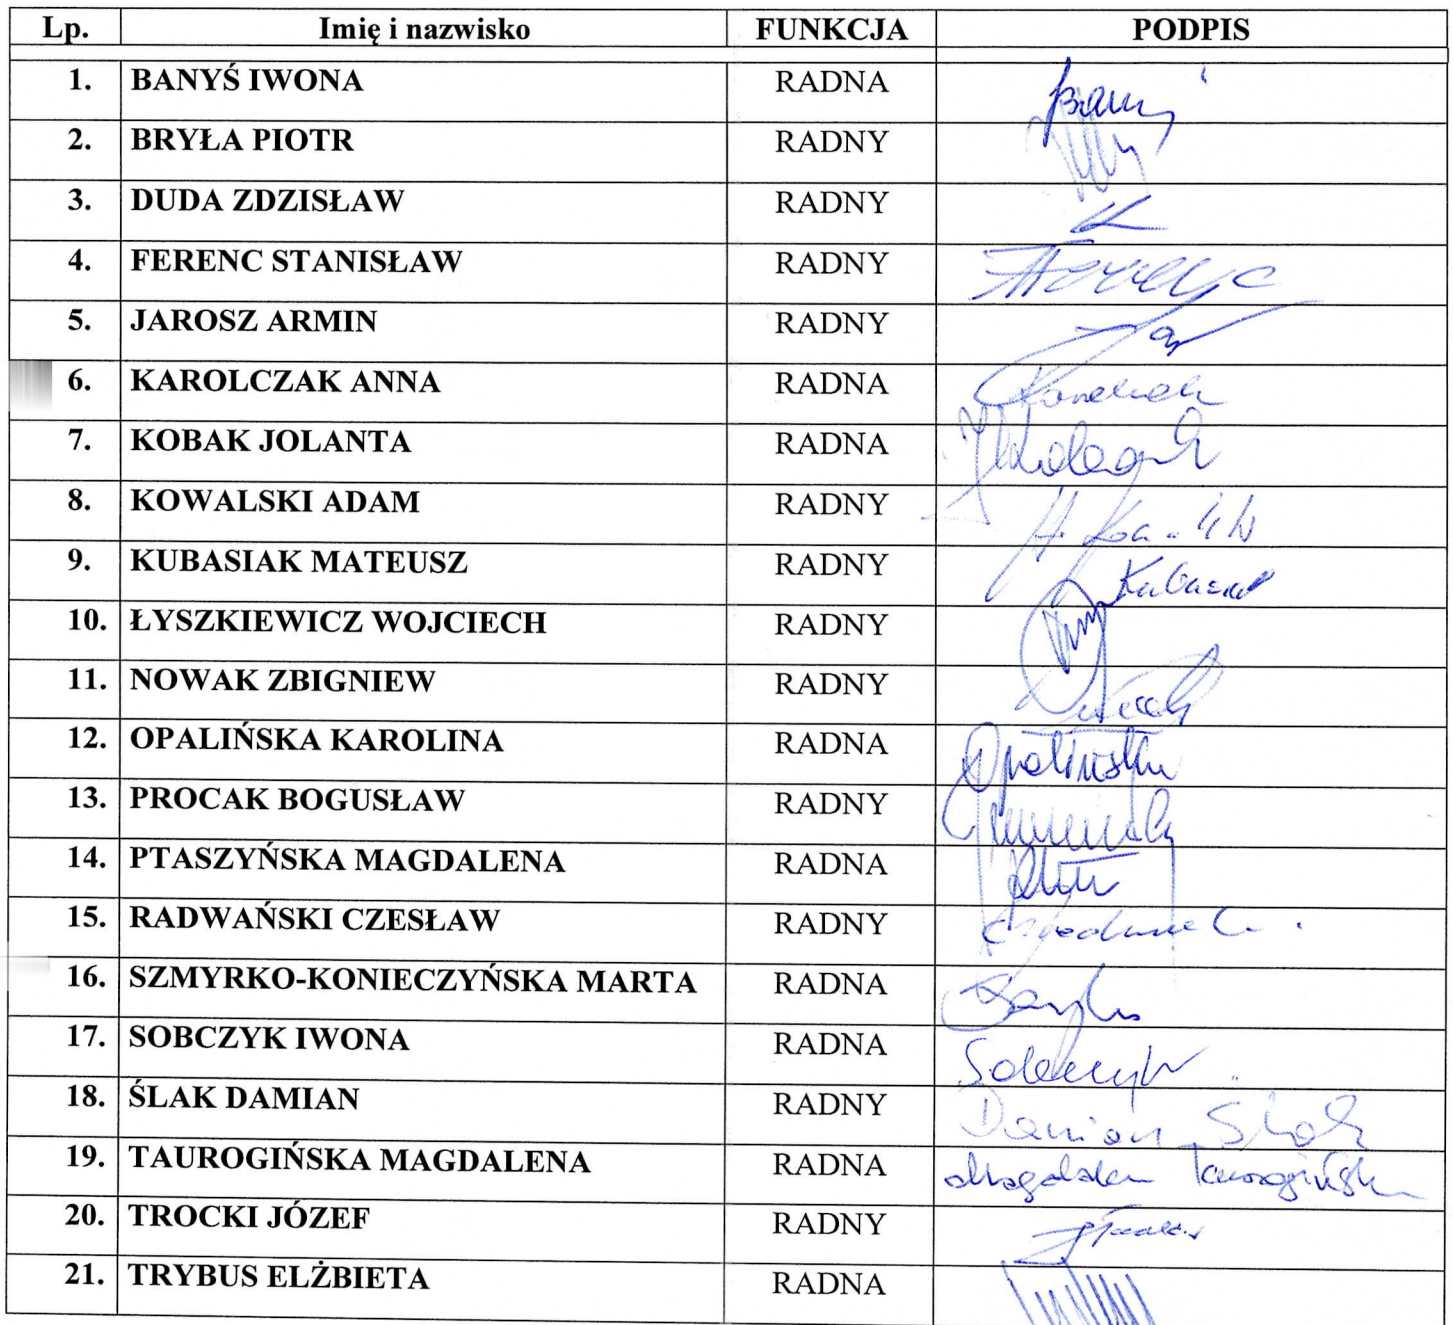 Lp. Imię i nazwisko FUNKCJA PODPIS
1. BANYŚ IWONA RADNA
2. BRYŁA PIOTR RADNY
3. DUDA ZDZISŁAW RADNY
4. FERENC STANISŁAW RADNY
5. JAROSZ ARMIN RADNY
6. KAROLCZAK ANNA RADNA
7. KOBAK JOLANTA RADNA
8. KOWALSKI ADAM RADNY
9. KUBASIAK MATEUSZ RADNY
10. ŁYSZKIEWICZ WOJCIECH RADNY
11. NOWAK ZBIGNIEW RADNY
12. OPALIŃSKA KAROLINA RADNA Opalińska
13. PROCAK BOGUSŁAW RADNY
14. PTASZYŃSKA MAGDALENA RADNA
15. RADWAŃSKI CZESŁAW RADNY
16. SZMYRKO-KONIECZYŃSKA MARTA RADNA
17. SOBCZYK IWONA RADNA Sobczyk
18. ŚLAK DAMIAN RADNY Damian Ślak
19. TAUROGIŃSKA MAGDALENA RADNA Magdalena Taurogińska
20. TROCKI JÓZEF RADNY
21. TRYBUS ELŻBIETA RADNA